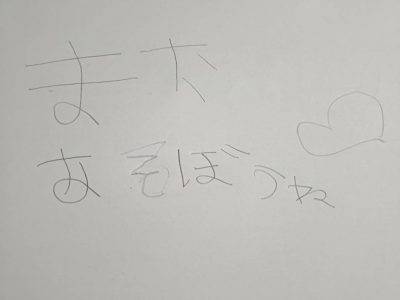 また
あそぼうね